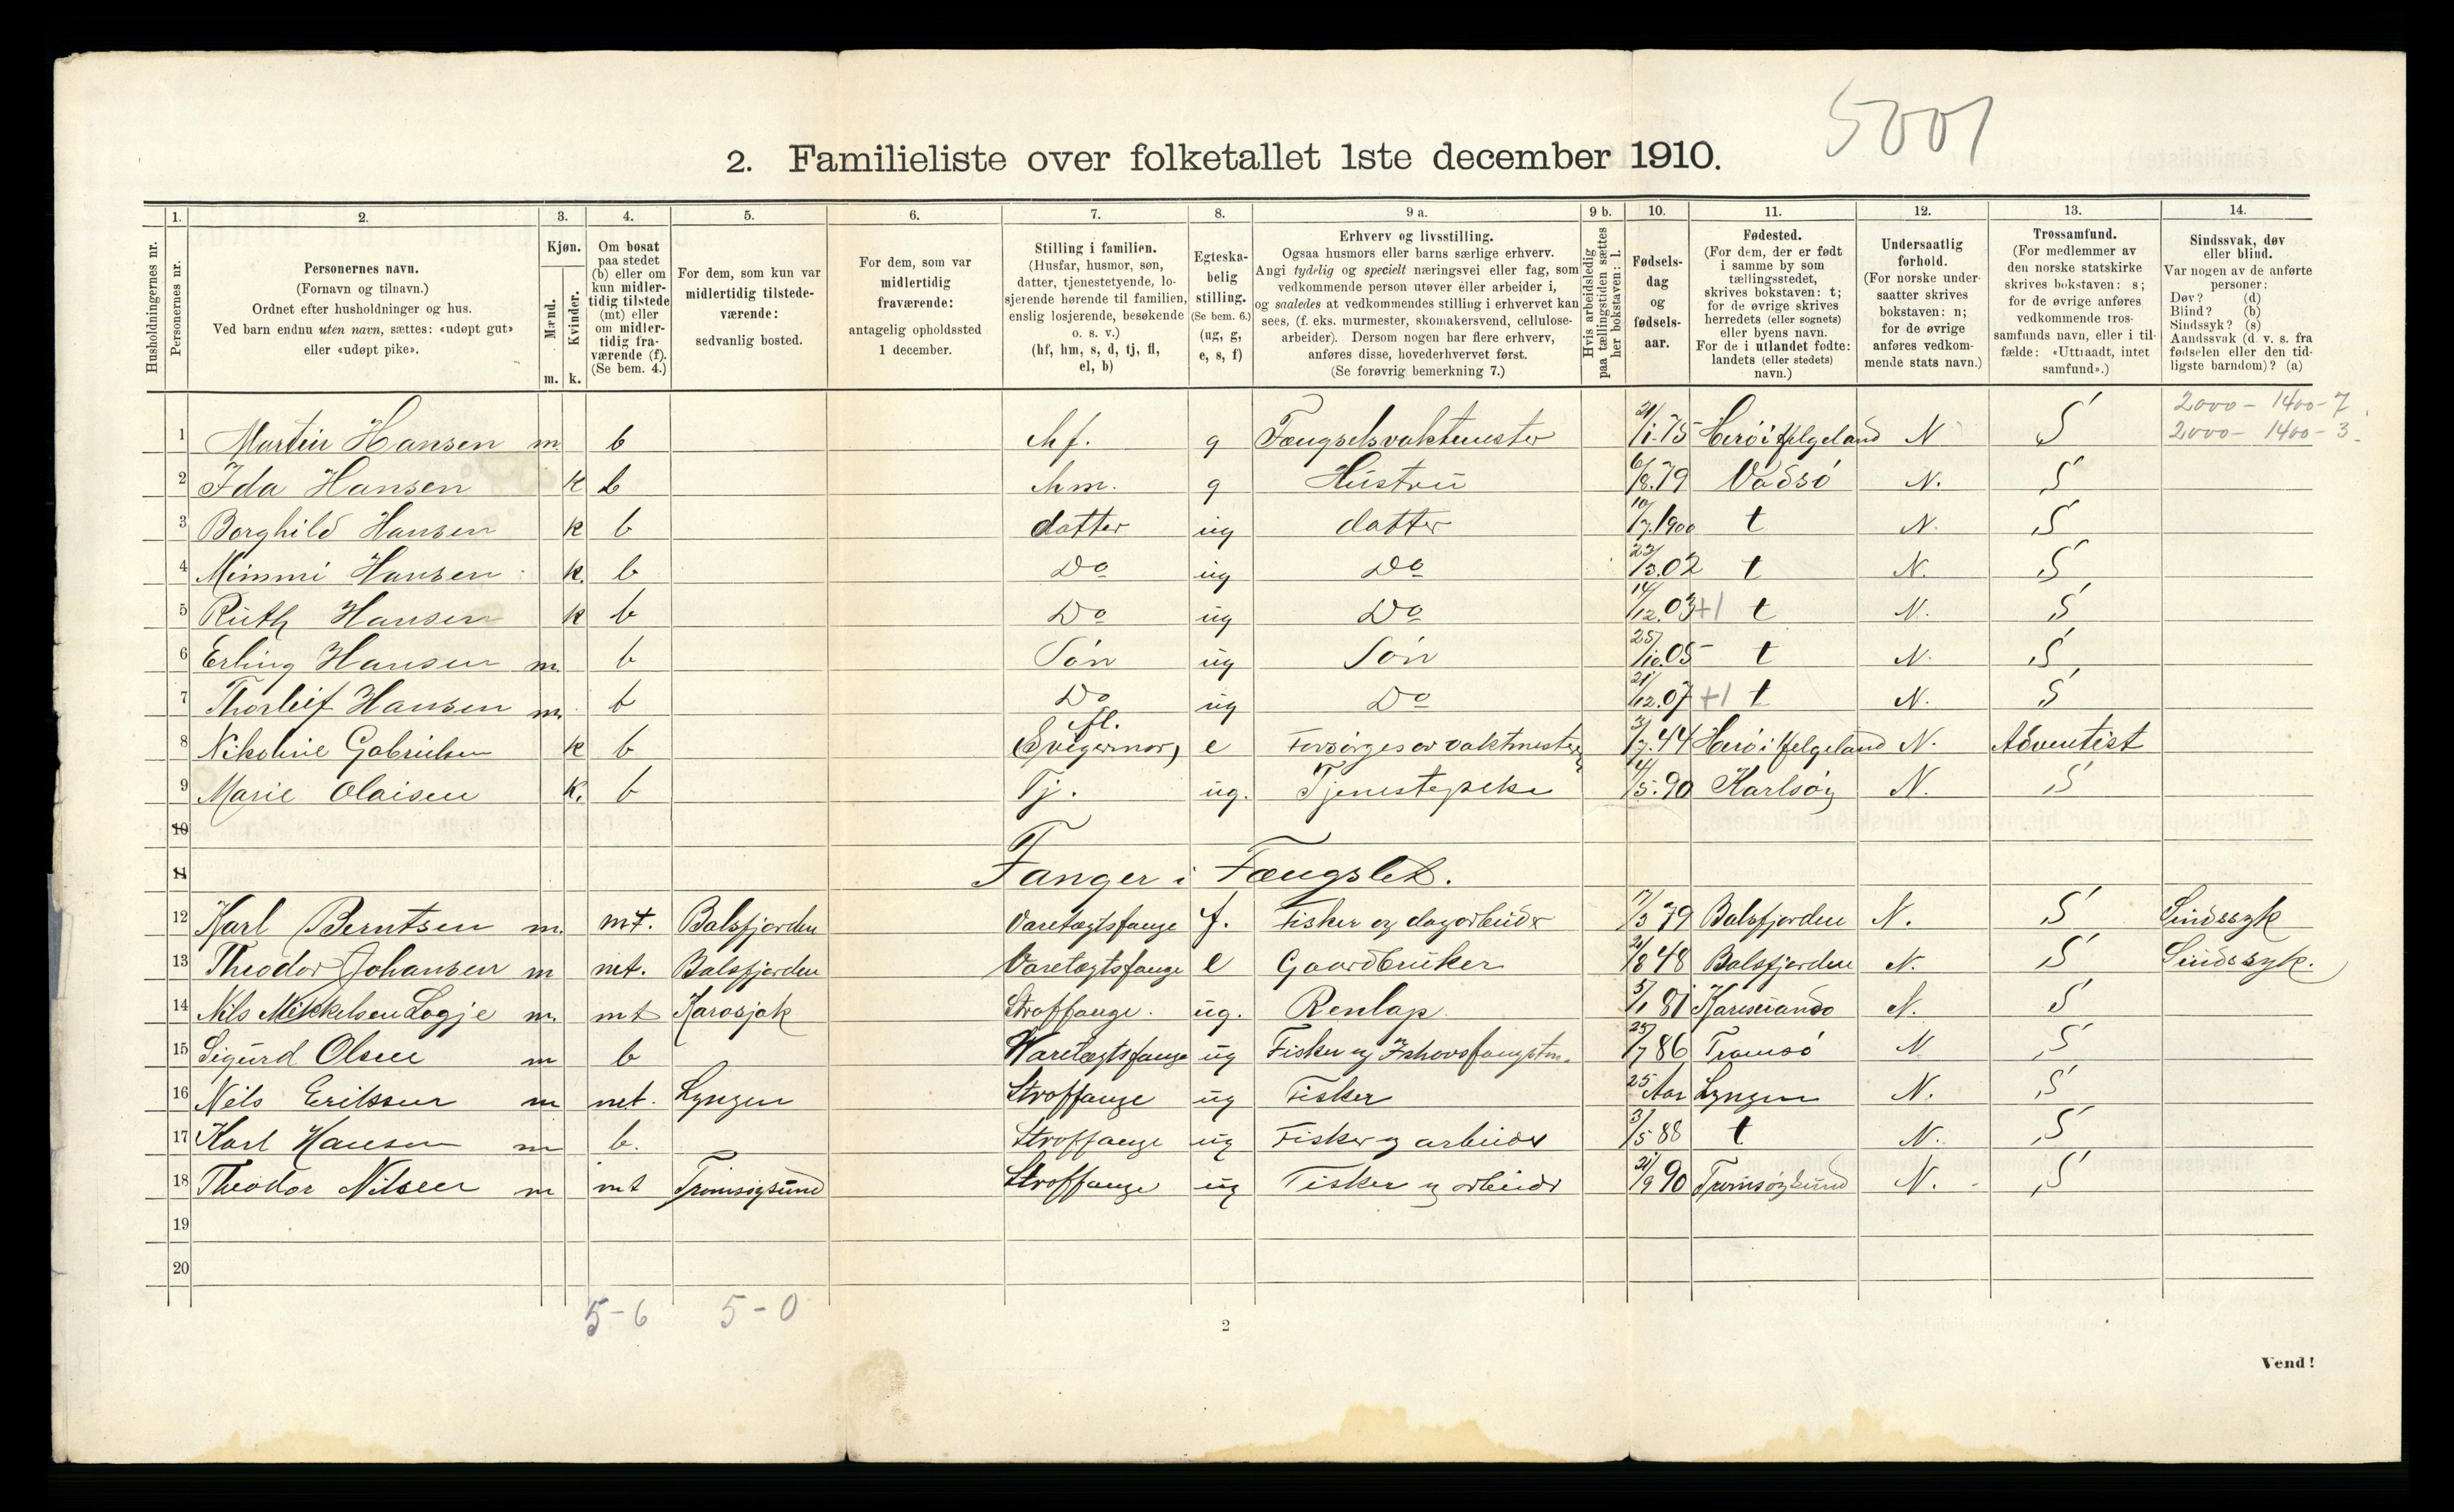 5001
2. Familieliste over folketallet 1ste december 1910.
1. 2. 3. 4. 5. 6. 7. 8. 9 a. 9 b. 10. 11. 12. 13. 14.
Husholdningernes nr.
Personernes nr.
Personernes navn.
(Fornavn og tilnavn.)
Ordnet efter husholdninger og hus.
Ved barn endnu uten navn, sættes: «udøpt gut»
eller «udøpt pike».
Kjøn.
Mænd.
Kvinder.
m. k.
Om bosat
paa stedet
(b) eller om
kun midler-
tidig tilstede
(mt) eller
om midler-
tidig fra-
værende (f).
(Se bem. 4.)
For dem, som kun var
midlertidig tilstede-
værende:
sedvanlig bosted.
For dem, som var
midlertidig
fraværende:
antagelig opholdssted
1 december.
Stilling i familien.
(Husfar, husmor, søn,
datter, tjenestetyende, lo-
sjerende hørende til familien,
enslig losjerende, besøkende
o. s. v.)
(hf, hm, s, d, tj, fl,
el, b)
Egteska-
belig
stilling.
(Se bem. 6.)
(ug, g,
e, s, f)
Erhverv og livsstilling.
Ogsaa husmors eller barns særlige erhverv.
Angi tydelig og specielt næringsvei eller fag, som
vedkommende person utøver eller arbeider i,
og saaledes at vedkommendes stilling i erhvervet kan
sees, (f. eks. murmester, skomakersvend, cellulose-
arbeider). Dersom nogen har flere erhverv,
anføres disse, hovederhvervet først.
(Se forøvrig bemerkning 7.)
Hvis arbeidsledig
paa tællingstiden sættes
her bokstaven: l.
Fødsels-
dag
og
fødsels-
aar.
Fødested.
(For dem, der er født
i samme by som
tællingsstedet,
skrives bokstaven: t;
for de øvrige skrives
herredets (eller sognets)
eller byens navn.
For de i utlandet fødte:
landets (eller stedets)
navn.)
Undersaatlig
forhold.
(For norske under-
saatter skrives
bokstaven: n;
for de øvrige
anføres vedkom-
mende stats navn.)
Trossamfund.
(For medlemmer av
den norske statskirke
skrives bokstaven: s;
for de øvrige anføres
vedkommende tros-
samfunds navn, eller i til-
fælde: «Uttraadt, intet
samfund».)
Sindssvak, døv
eller blind.
Var nogen av de anførte
personer:
Døv? (d)
Blind? (b)
Sindssyk? (s)
Aandssvak (d. v. s. fra
fødselen eller den tid-
ligste barndom)? (a)
2000 - 1400 - 7
2000 - 1400 - 3
1 Martin Hansen m. b hf. g Fængselsvaktmester 21/1.75 Herö i Helgeland N S
2 Ida Hansen k b hm. g Hustru 6/8.79 Vadsö N. S
3 Borghild Hansen k b datter ug datter 10/7.1900 t N. S
4 Mimmi Hansen k. b Do ug Do 23/3.02 t N. S
5 Ruth Hansen k b Do ug Do 14/12.03 +1 t N. S
6 Erling Hansen m. b Sön ug Sön 25/10.05 t N. S
7 Thorleif Hansen m. b Do ug Do 21/12.07 +1 t N. S
8 Nikoline Gabrielsen k b fl. (Svigermor) e Forsörges av vaktmester 3/7.44 Herö i Helgeland N. Adventist
9 Marie Olaisen k. b Tj. ug. Tjenestepike 4/5.90 Karlsöy N. S
10
11 Fanger i Fængslet.
12 Karl Berntsen m. mt. Balsfjorden Varetægtsfange f. Fisker og dagarbeider 17/3 79 Balsfjorden N. S Sindssyk
13 Theodor Johansen m mt. Balsfjorden Varetægtsfange e Gaardbruker 21/8 48 Balsfjorden N. S Sindssyk.
14 Nils Mikkelsen Logje m. mt Karasjok Straffange. ug. Renlap 5/1 81 Karesuando N. S
15 Sigurd Olsen m b Waretægtsfange ug Fisker og Ishavsfangstm. 25/7 86 Tromsö N S
16 Nils Eriksen m mt. Lyngen Straffange ug Fisker 25 Aar Lyngen N. S
17 Karl Hansen m b. Straffange ug Fisker og arbeider 3/5 88 t N. S
18 Theodor Nilsen m mt Tromsöysund Straffange ug Fisker og arbeider 21/9 90 Tromsöysund N. S
19
20
5-6 5-0
2
Vend!